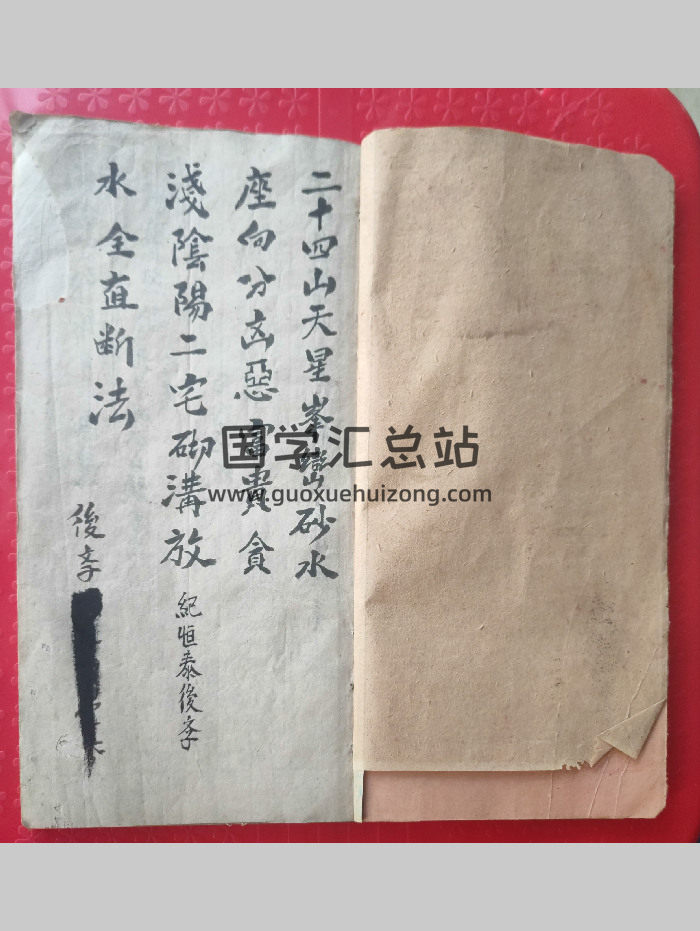 二十四山天星峯巒砂水
座向分㐫惡富貴貪
淺陰陽二宅砌溝放
紀恒泰後斈
水全直斷法
後斈
国学汇总站
www.guoxuehuizong.com